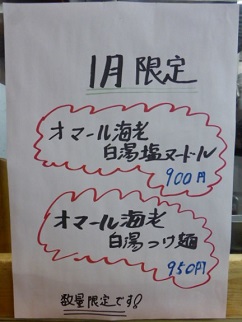 1月限定
オマール海老
白湯塩ヌードル
900円
オマール海老
白湯つけ麺
950円
数量限定です!